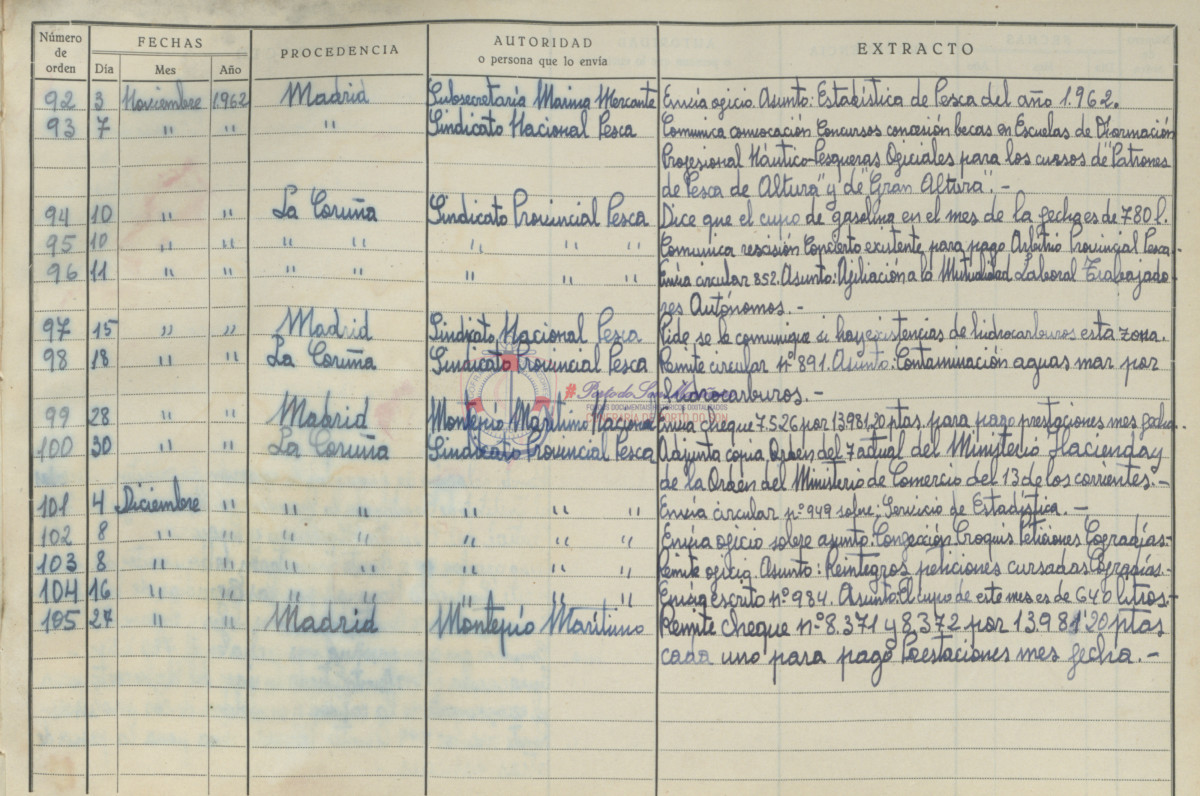 Número de orden FECHAS PROCEDENCIA AUTORIDAD o persona que lo envía EXTRACTO
Día Mes Año
92 3 Noviembre 1.962 Madrid Subsecretaría Marina Mercante Envía oficio. Asunto: Estadística de Pesca del año 1.962.
93 7 " " " Sindicato Nacional Pesca Comunica convocación Concursos concesión becas en Escuelas de Oformación
Profesional Náutico-Pesqueras Oficiales para los cursos de "Patrones
de Pesca de Altura" y de "Gran Altura". -
94 10 " " La Coruña Sindicato Provincial Pesca Dice que el cupo de gasolina en el mes de la fecha es de 780 l.
95 10 " " " " " " " Comunica rescisión Concierto existente para pago Arbitrio Provincial Pesca.-
96 11 " " " " " " " Envía circular 852. Asunto: Afiliación a la Mutualidad Laboral Trabajado-
res Autónomos. -
97 15 " " Madrid Sindicato Nacional Pesca Pide se le comunique si hay existencias de hidrocarburos esta zona.
98 18 " " La Coruña Sindicato Provincial Pesca Remite circular nº 891. Asunto: Contaminación aguas mar por
hidrocarburos. -
#PortodoSonMariñeiro
FONDOS DOCUMENTAIS HISTÓRICOS DIGITALIZADOS
CONFRARÍA DE PORTO DO SON
99 28 " " Madrid Montepío Marítimo Nacional Envía cheque 7.526 por 13.981,20 ptas. para pago prestaciones mes fecha.
100 30 " " La Coruña Sindicato Provincial Pesca Adjunta copia Orden del 7 actual del Ministerio Hacienda y
de la Orden del Ministerio de Comercio del 13 de los corrientes. -
101 4 Diciembre " " " " " " Envía circular nº 949 sobre: Servicio de Estadística. -
102 8 " " " " " " " Envía oficio sobre asunto: Confección Croquis Peticiones Cofradías.-
103 8 " " " " " " " Remite oficio. Asunto: Reintegros peticiones cursadas Cofradías.-
104 16 " " " " " " " Envía escrito nº 984. Asunto: El cupo de este mes es de 640 litros.-
105 27 " " Madrid Montepío Marítimo Remite cheque nº 8.371 y 8.372 por 13.981'20 ptas
cada uno para pago Prestaciones mes fecha. -